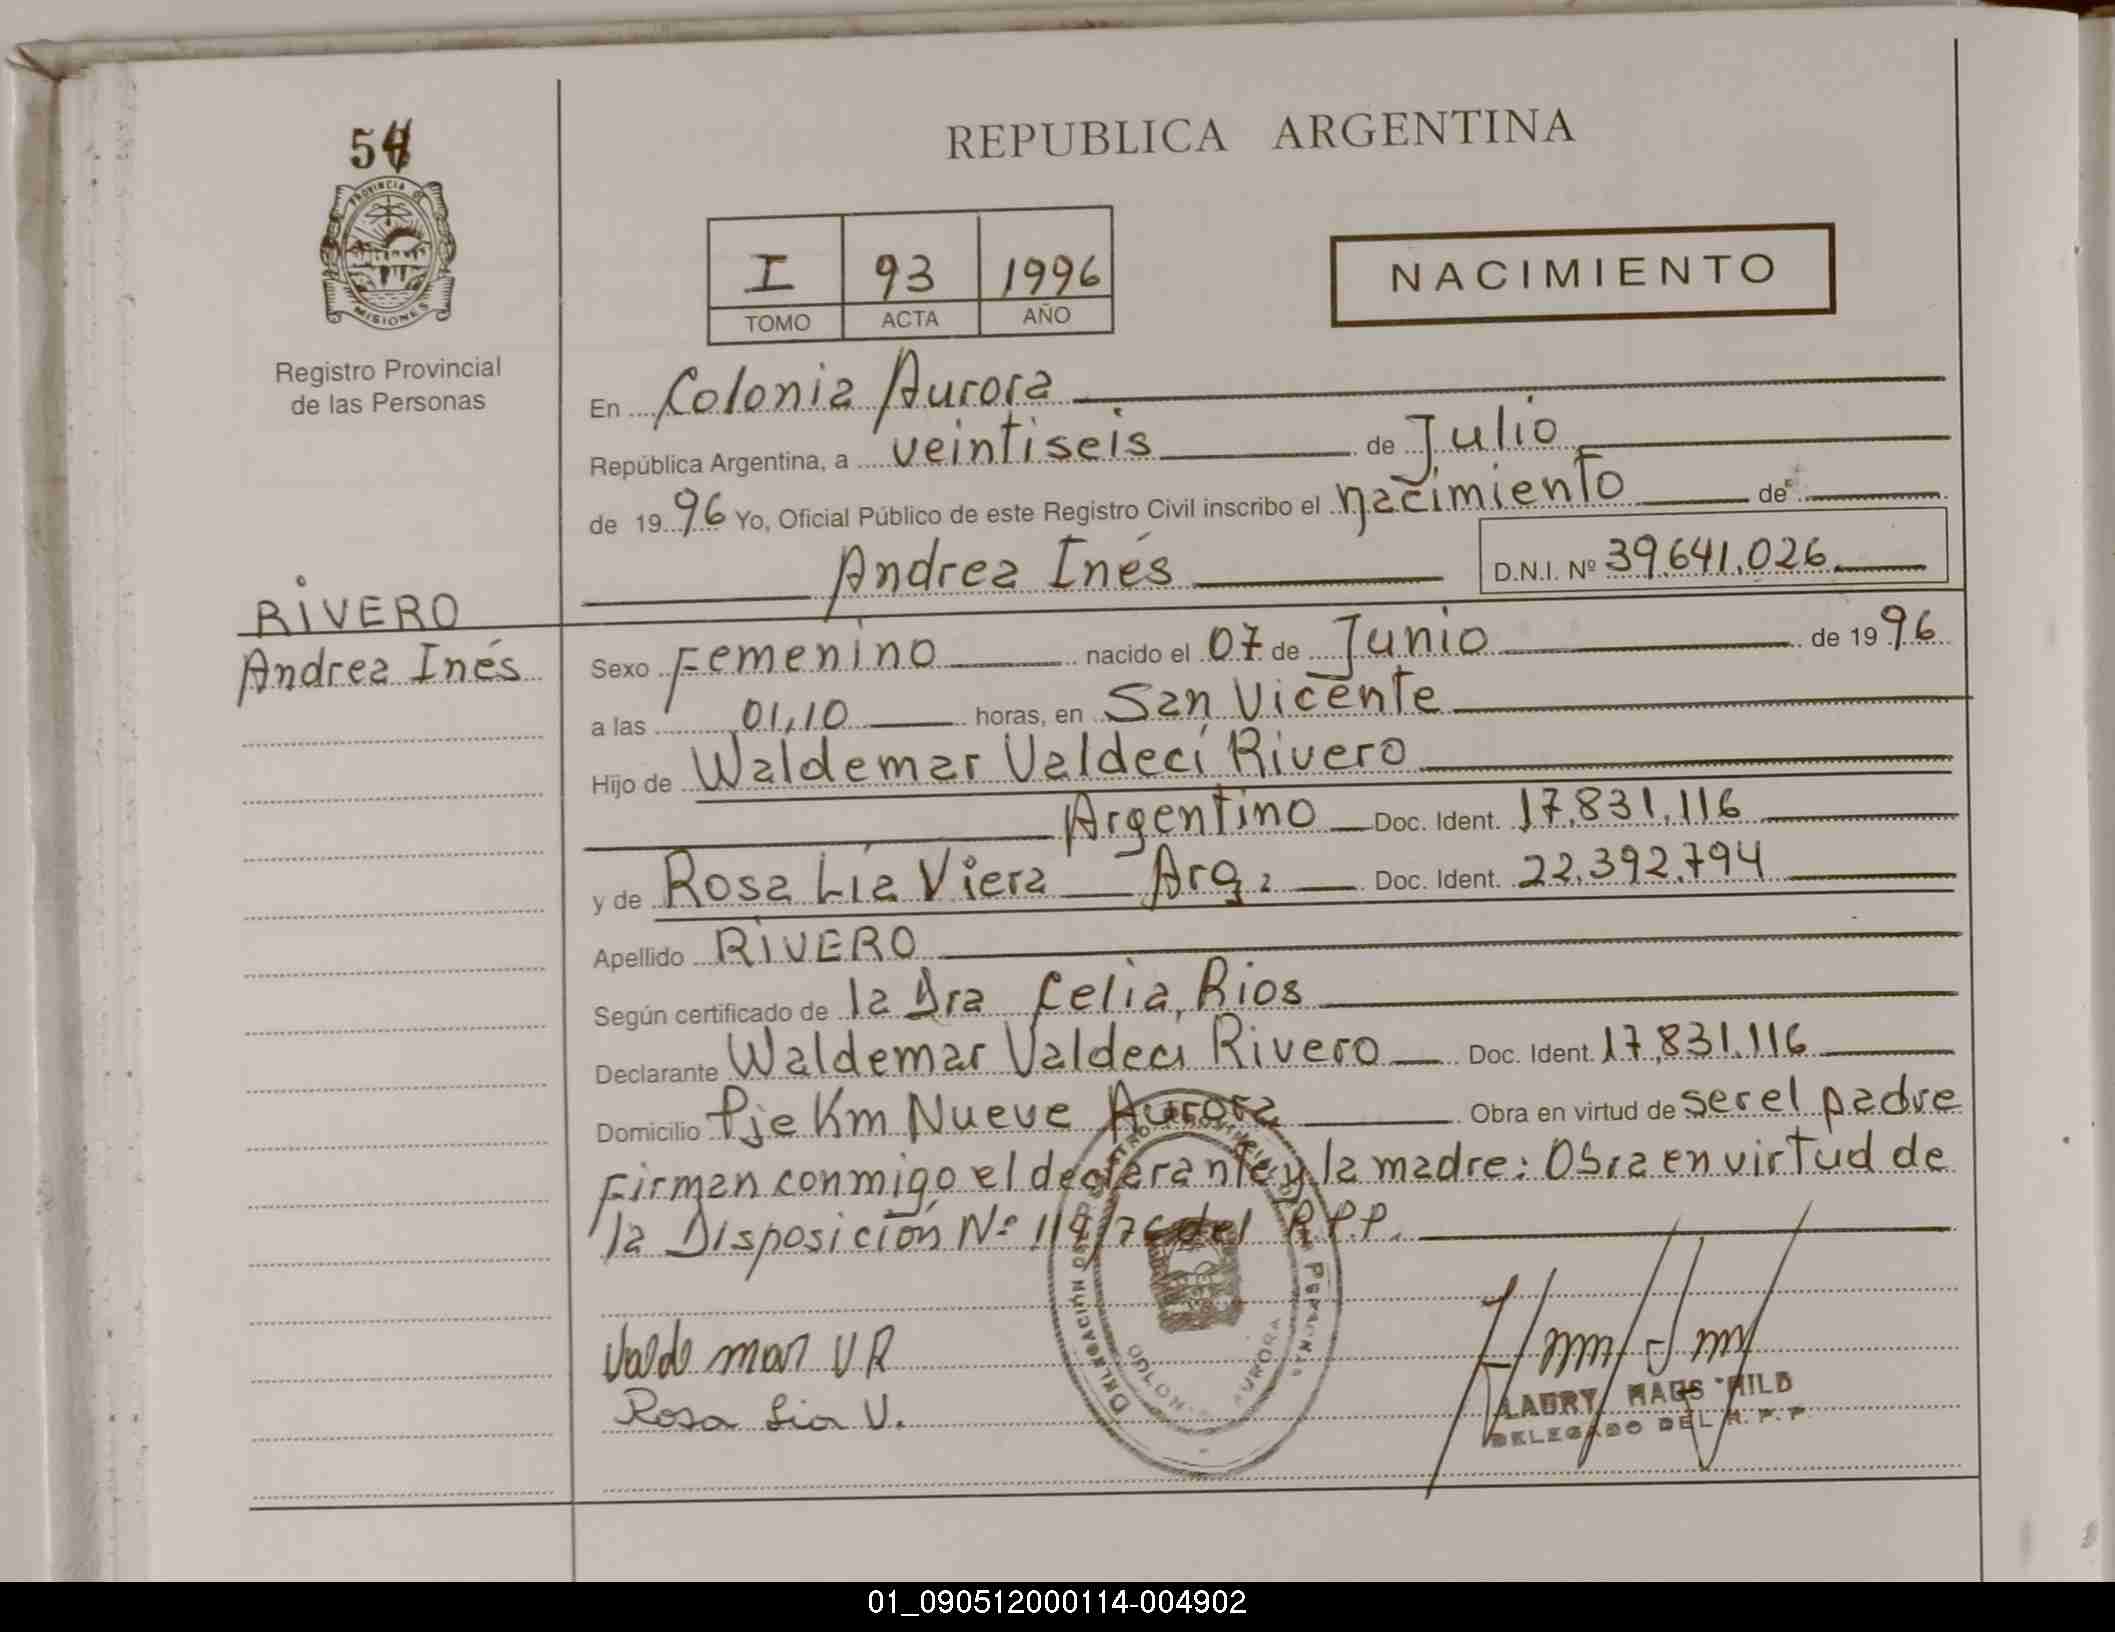 REPUBLICA ARGENTINA
PROVINCIA DE
MISIONES
Registro Provincial
de las Personas
I 93 1996
TOMO ACTA AÑO
NACIMIENTO
En Colonia Aurora
República Argentina, a veintiseis de Julio
de 1996 Yo, Oficial Público de este Registro Civil inscribo el nacimiento de
Andrea Inés D.N.I. Nº 39.641.026
RIVERO
Andrea Inés
Sexo Femenino nacido el 07 de Junio de 1996
a las 01,10 horas, en San Vicente
Hijo de Waldemar Valdeci Rivero
Argentino Doc. Ident. 17.831.116
y de Rosa Lía Viera Arg. Doc. Ident. 22.392.794
Apellido RIVERO
Según certificado de la Dra Celia Rios
Declarante Waldemar Valdeci Rivero Doc. Ident. 17.831.116
Domicilio Pje Km Nueve Aurora Obra en virtud de ser el padre
Firman conmigo el declarante y la madre: Obra en virtud de
la Disposición Nº del R.P.P.
Valdemar V R
Rosa Lia V.
DELEGADO DEL R.P.P.
COLONIA AURORA
01_090512000114-004902